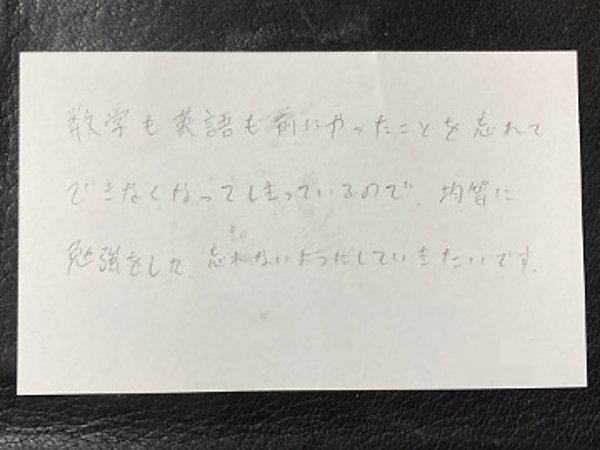 数学も英語も前にやったことを忘れて
できなくなってしまっているので、均等に
勉強をして、忘れないようにしていきたいです。